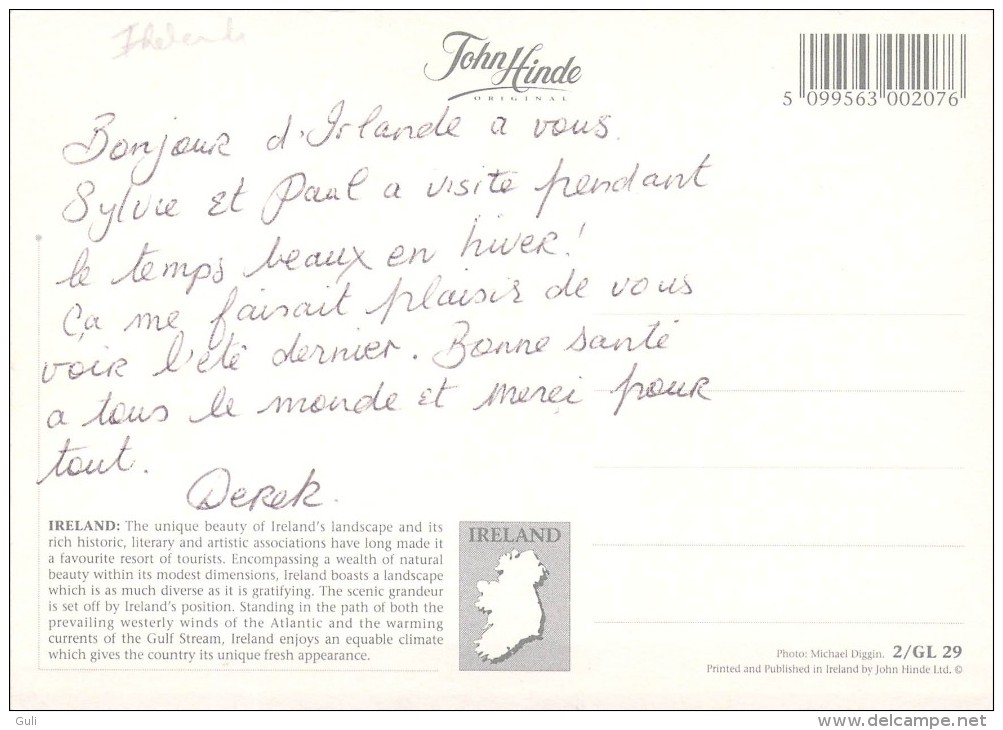 John Hinde
ORIGINAL
5 099563 002076
Bonjour d'Irlande a vous.
Sylvie et Paul a visite pendant
le temps beaux en hiver!
Ça me faisait plaisir de vous
voir l'été dernier. Bonne santé
a tous le monde et merci pour
tout.
Derek.
IRELAND: The unique beauty of Ireland's landscape and its
rich historic, literary and artistic associations have long made it
a favourite resort of tourists. Encompassing a wealth of natural
beauty within its modest dimensions, Ireland boasts a landscape
which is as much diverse as it is gratifying. The scenic grandeur
is set off by Ireland's position. Standing in the path of both the
prevailing westerly winds of the Atlantic and the warming
currents of the Gulf Stream, Ireland enjoys an equable climate
which gives the country its unique fresh appearance.
IRELAND
Photo: Michael Diggin. 2/GL 29
Printed and Published in Ireland by John Hinde Ltd. ©
Guli
www.delcampe.net